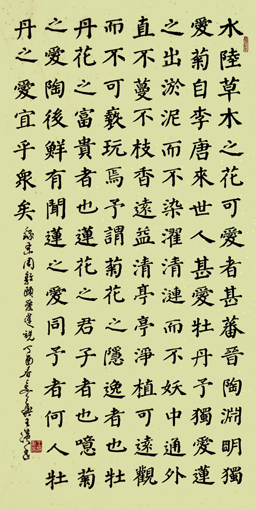 水陸草木之花可愛者甚蕃晉陶淵明獨
愛菊自李唐來世人甚愛牡丹予獨愛蓮
之出淤泥而不染濯清漣而不妖中通外
直不蔓不枝香遠益清亭亭淨植可遠觀
而不可褻玩焉予謂菊花之隱逸者也牡
丹花之富貴者也蓮花之君子者也噫菊
之愛陶後鮮有聞蓮之愛同予者何人牡
丹之愛宜乎衆矣
錄宋周敦頤愛蓮說丁酉